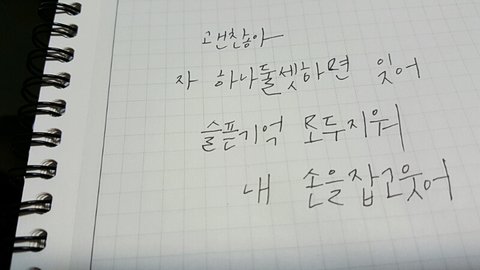 괜찮아
자 하나둘셋하면 잊어
슬픈기억 모두지워
내 손을잡고웃어